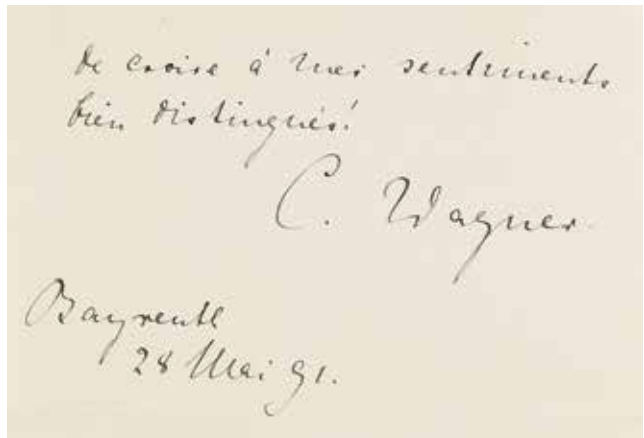 de croire à mes sentiments
bien distingués!
C. Wagner.
Bayreuth
28 Mai 91.